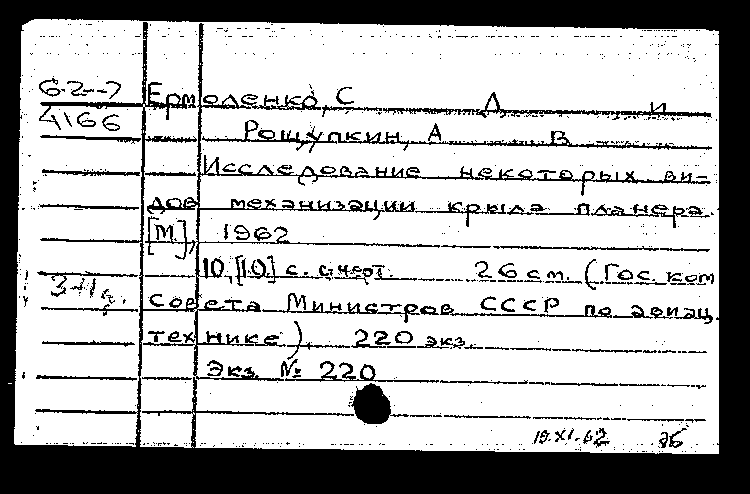 62-7 Ермоленко, С Д и
4166 Рощупкин, А В
Исследование некоторых ви-
дов механизации крыла планера.
[М.], 1962
10, [10] с. с черт. 26 см. (Гос. ком
Совета Министров СССР по авиац.
технике). 220 экз.
Экз. № 220
19.XI.62